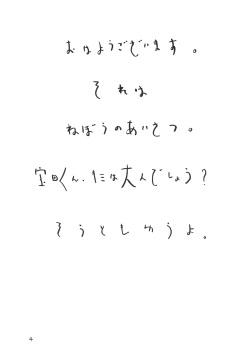 おはようございます。
それは
ねぼうのあいさつ。
宝田くん、仁は大人でしょう?
そうとしゆうよ。
4